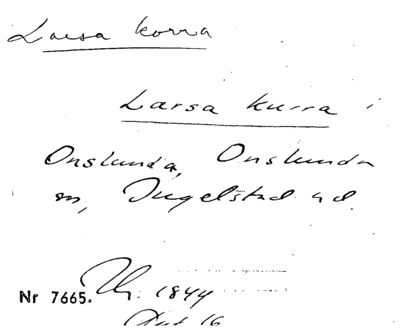 Larsa korra
Larsa kurra i
Onslunda, Onslunda
sn, Ingelstad hd.
Nr 7665. Th: 1844
16